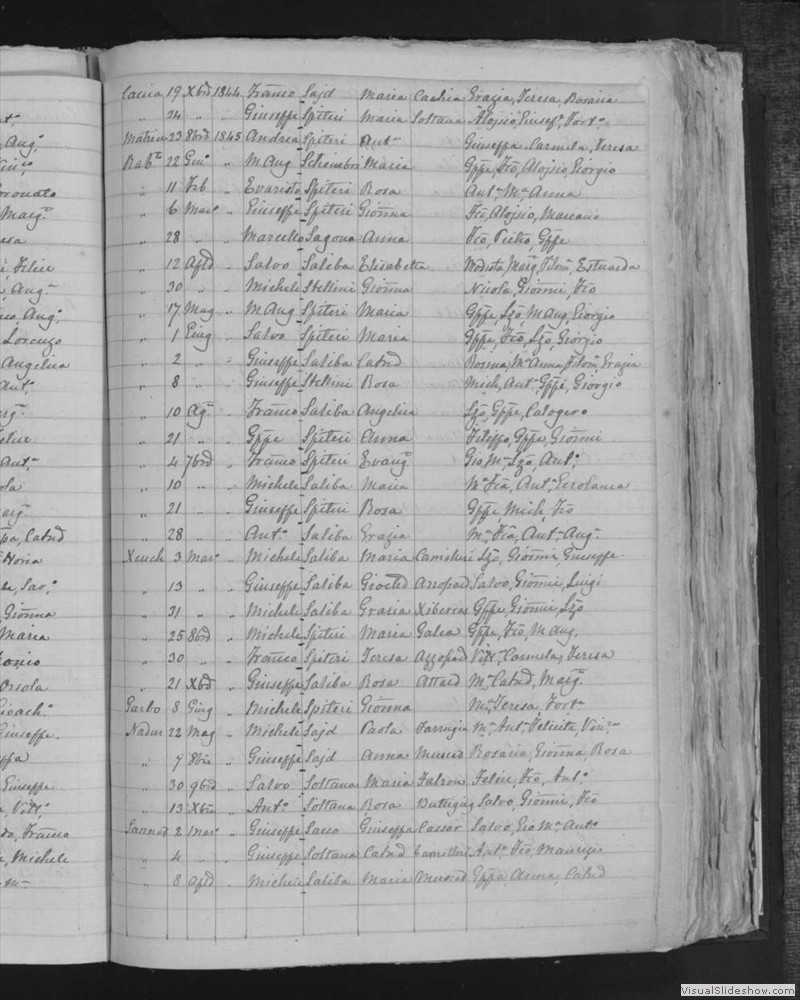 Caccia 19 Xbre 1844 Franco Sajd Maria Cachia Grazia, Teresa, Rosaria
" 24 " " Giuseppe Spiteri Maria Soltana Aloisio, Giusepe, Fort.
Matrice 23 8bre 1845 Andrea Spiteri Ant. Giuseppa, Carmela, Teresa
Rab.to 22 Gen.o " M Aug Schembri Maria Gppe, Fco, Aloisio, Giorgio
" 11 Feb " Evaristo Spiteri Rosa Ant. M. Anna
" 6 Mar.o " Giuseppe Spiteri Gionna Fco, Aloysio, Mariano
" 28 " " Marcello Sagona Anna Fco, Pietro, Gppe
" 12 Apld " Salvo Saliba Elisabetta Modesta, Marg, Filom
" 30 " " Michele Stellini Gionna Nicola, Gionni, Fco
" 17 Mag " M Aug Spiteri Maria Gppe, Lzo, M Aug, Giorgio
" 1 Giug " Salvo Spiteri Maria Gppe, Fco, Lzo, Giorgio
" 2 " " Giuseppe Saliba Catnd Rosina, M. Anna, Filom, Grazia
" 8 " " Giuseppe Stellini Rosa Mich, Ant. Gppe, Giorgio
" 10 Ag. " Franco Saliba Angelica Lzo, Gppe, Calogero
" 21 " " Gppe Spiteri Anna Filippo, Gppe, Gionni
" 4 7bre " Franco Spiteri Evang Gio M. Lzo, Ant.
" 10 " " Michele Saliba Maria M. Fca, Ant.
" 21 " " Giuseppe Spiteri Rosa Gppe, Mich, Fco
" 28 " " Ant. Saliba Grazia M. Fca, Ant. Aug.
Xeuch 3 Mar.o " Michele Saliba Maria Camilleri Lzo, Gionni, Giuseppe
" 13 " " Giuseppe Saliba Azzopad Salvo, Gionni, Luigi
" 31 " " Michele Saliba Grazia Xiberras Gppe, Gionni, Lzo
" 25 8bre " Michele Spiteri Maria Galea Gppe, Fco, M Aug.
" 30 " " Franco Spiteri Teresa Azzopad Vitt. Carmela, Teresa
" 21 Xbre " Giuseppe Saliba Rosa Attard M. Catnd, Marg
Garbo 8 Giug " Michele Spiteri Gionna M. Teresa, Fort.
Nadur 22 Mag " Michele Sajd Paola Farrugia M. Ant. Felicita, Vin.
" 7 8bre " Giuseppe Sajd Anna Muscad Rosaria, Gionna, Rosa
" 30 9bre " Salvo Soltana Maria Falzon Felice, Fco, Ant.
" 13 Xbre " Ant. Soltana Rosa Buttigieg Salvo, Gionni, Fco
Sannad 2 Mar.o " Giuseppe Sacco Giuseppa Cassar Salvo, Gio M. Ant.
" 4 " " Giuseppe Soltana Catnd Camilleri Ant. Fco, Maurizio
" 8 Apld " Michele Saliba Maria Muscad Gppa, Anna, Catnd
Aug.
Felice
Aug.
Lorenzo
Angelica
Ant.
Ant.
Catnd
Gionna
Maria
Orsola
Giuseppe
Giuseppe
Vitt.
Franco
Michele
VisualSlideshow.com